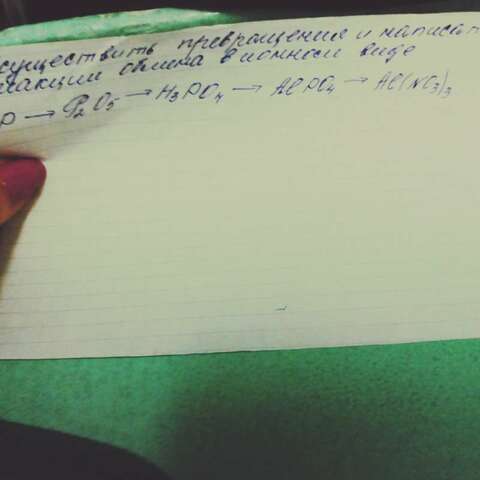 существить превращения и написат
еакции обмена в ионном виде
P → P₂O₅ → H₃PO₄ → AlPO₄ → Al(NO₃)₃